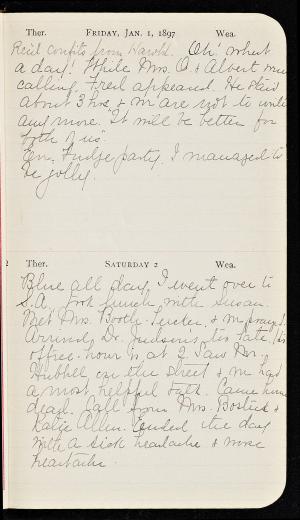 Ther. FRIDAY, JAN. 1, 1897 Wea.
Rec'd confits from Harold. Oh! what
a day! While Mrs. O. & Albert were
calling, Fred appeared. He staid
about 3 hrs. & we are not to write
any more. It will be better for
both of us.
Eve. Fudge party. I managed to
be jolly.
2 Ther. SATURDAY 2 Wea.
Blue all day. I went over to
S.A. Took lunch with Susan.
Met Mrs. Booth-Tucker, & we prayed.
Arrived Dr. Judson's too late. His
office-hour is at 2. Saw Mr.
Hubbell on the street & we had
a most helpful talk. Came home
dead. Call from Mrs. Bostick &
Katie Allen. Ended the day
with a sick headache & more
heartache.